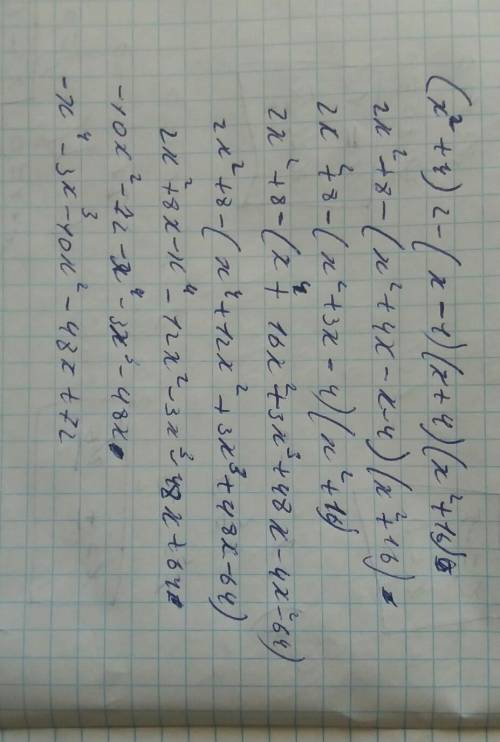 (x² + 4) 2 - (x - 4)(x + 4)(x² + 16)
2x² + 8 - (x² + 4x - x - 4)(x² + 16)
2x² + 8 - (x² + 3x - 4)(x² + 16)
2x² + 8 - (x⁴ + 16x² + 3x³ + 48x - 4x² - 64)
2x² + 8 - (x⁴ + 12x² + 3x³ + 48x - 64)
2x² + 8x - x⁴ - 12x² - 3x³ - 48x + 64
-10x² - 72 - x⁴ - 3x³ - 48x
-x⁴ - 3x³ - 10x² - 48x + 72